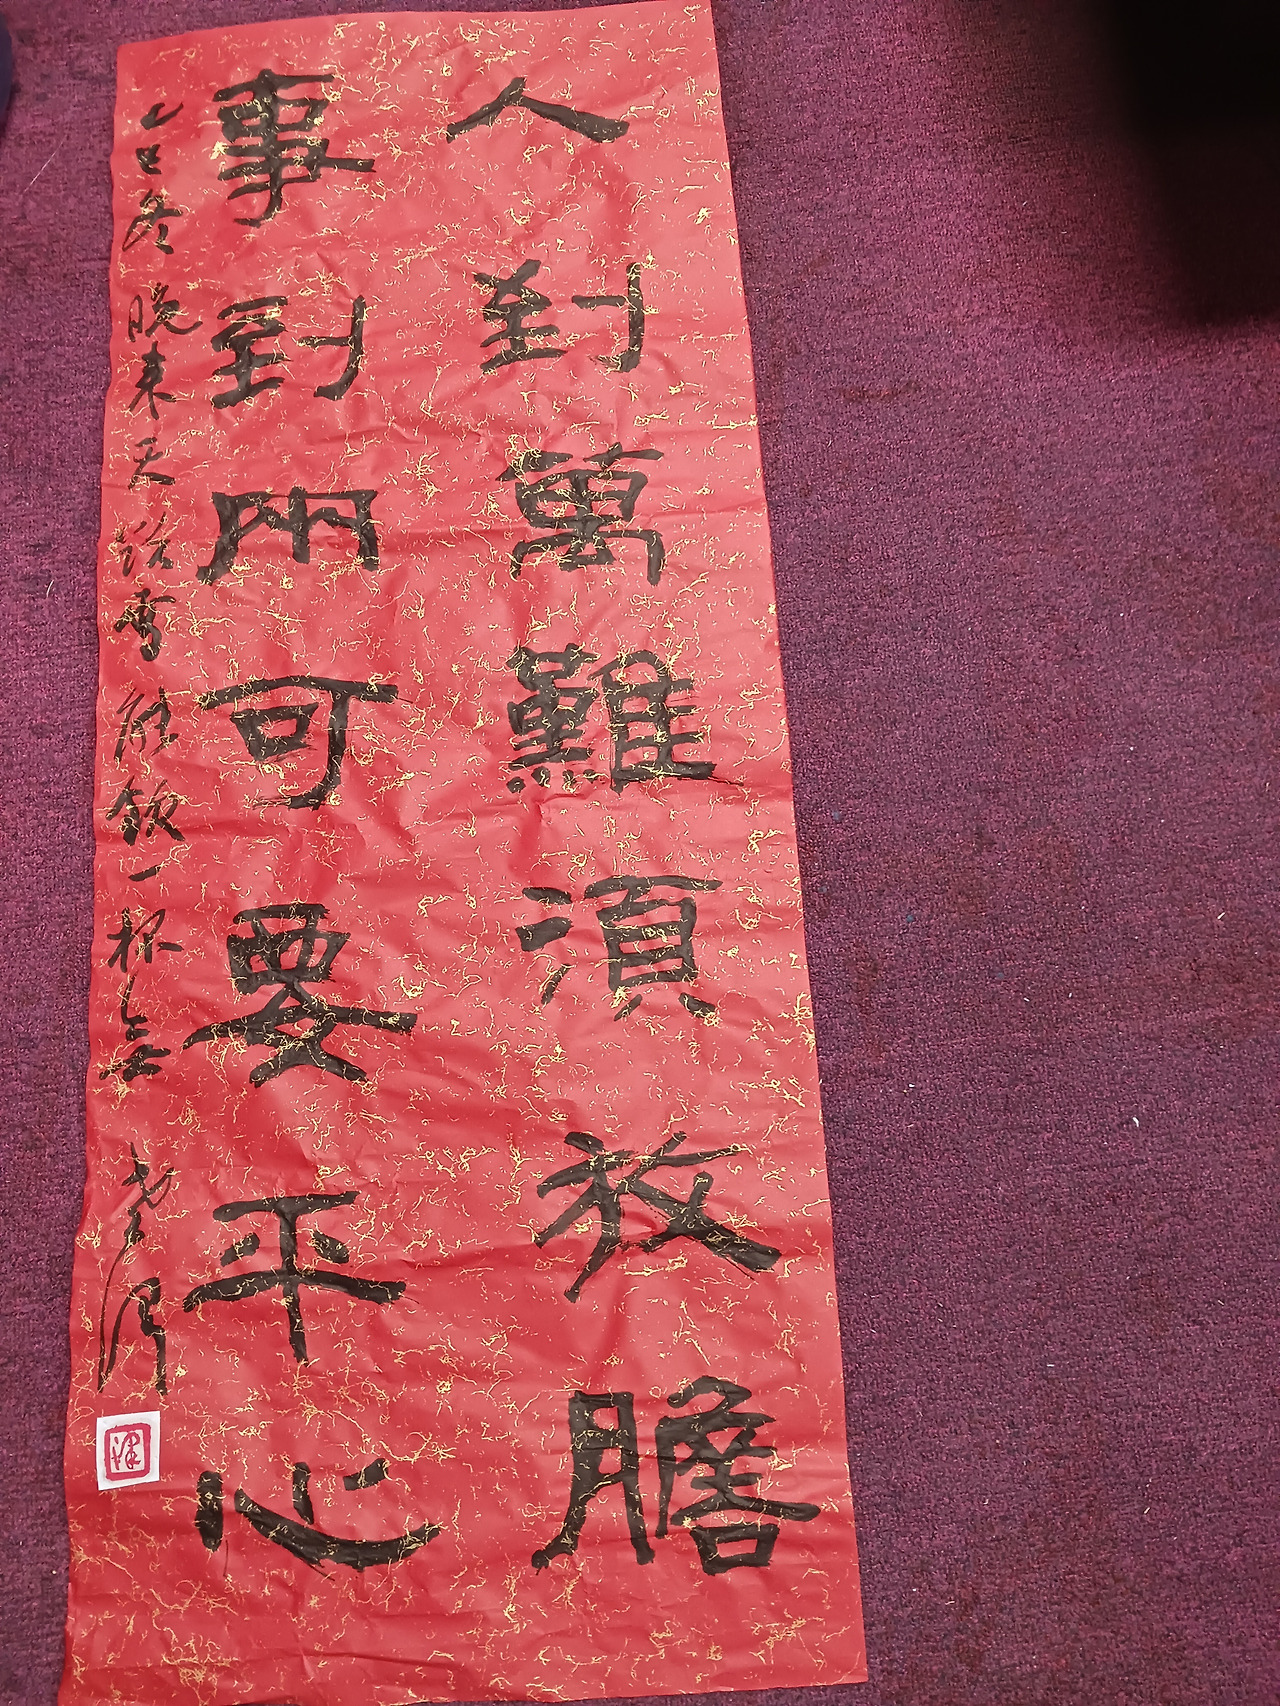 人到萬難須放膽
事到兩可要平心
乙巳冬 晚来天欲雪能飲一杯無